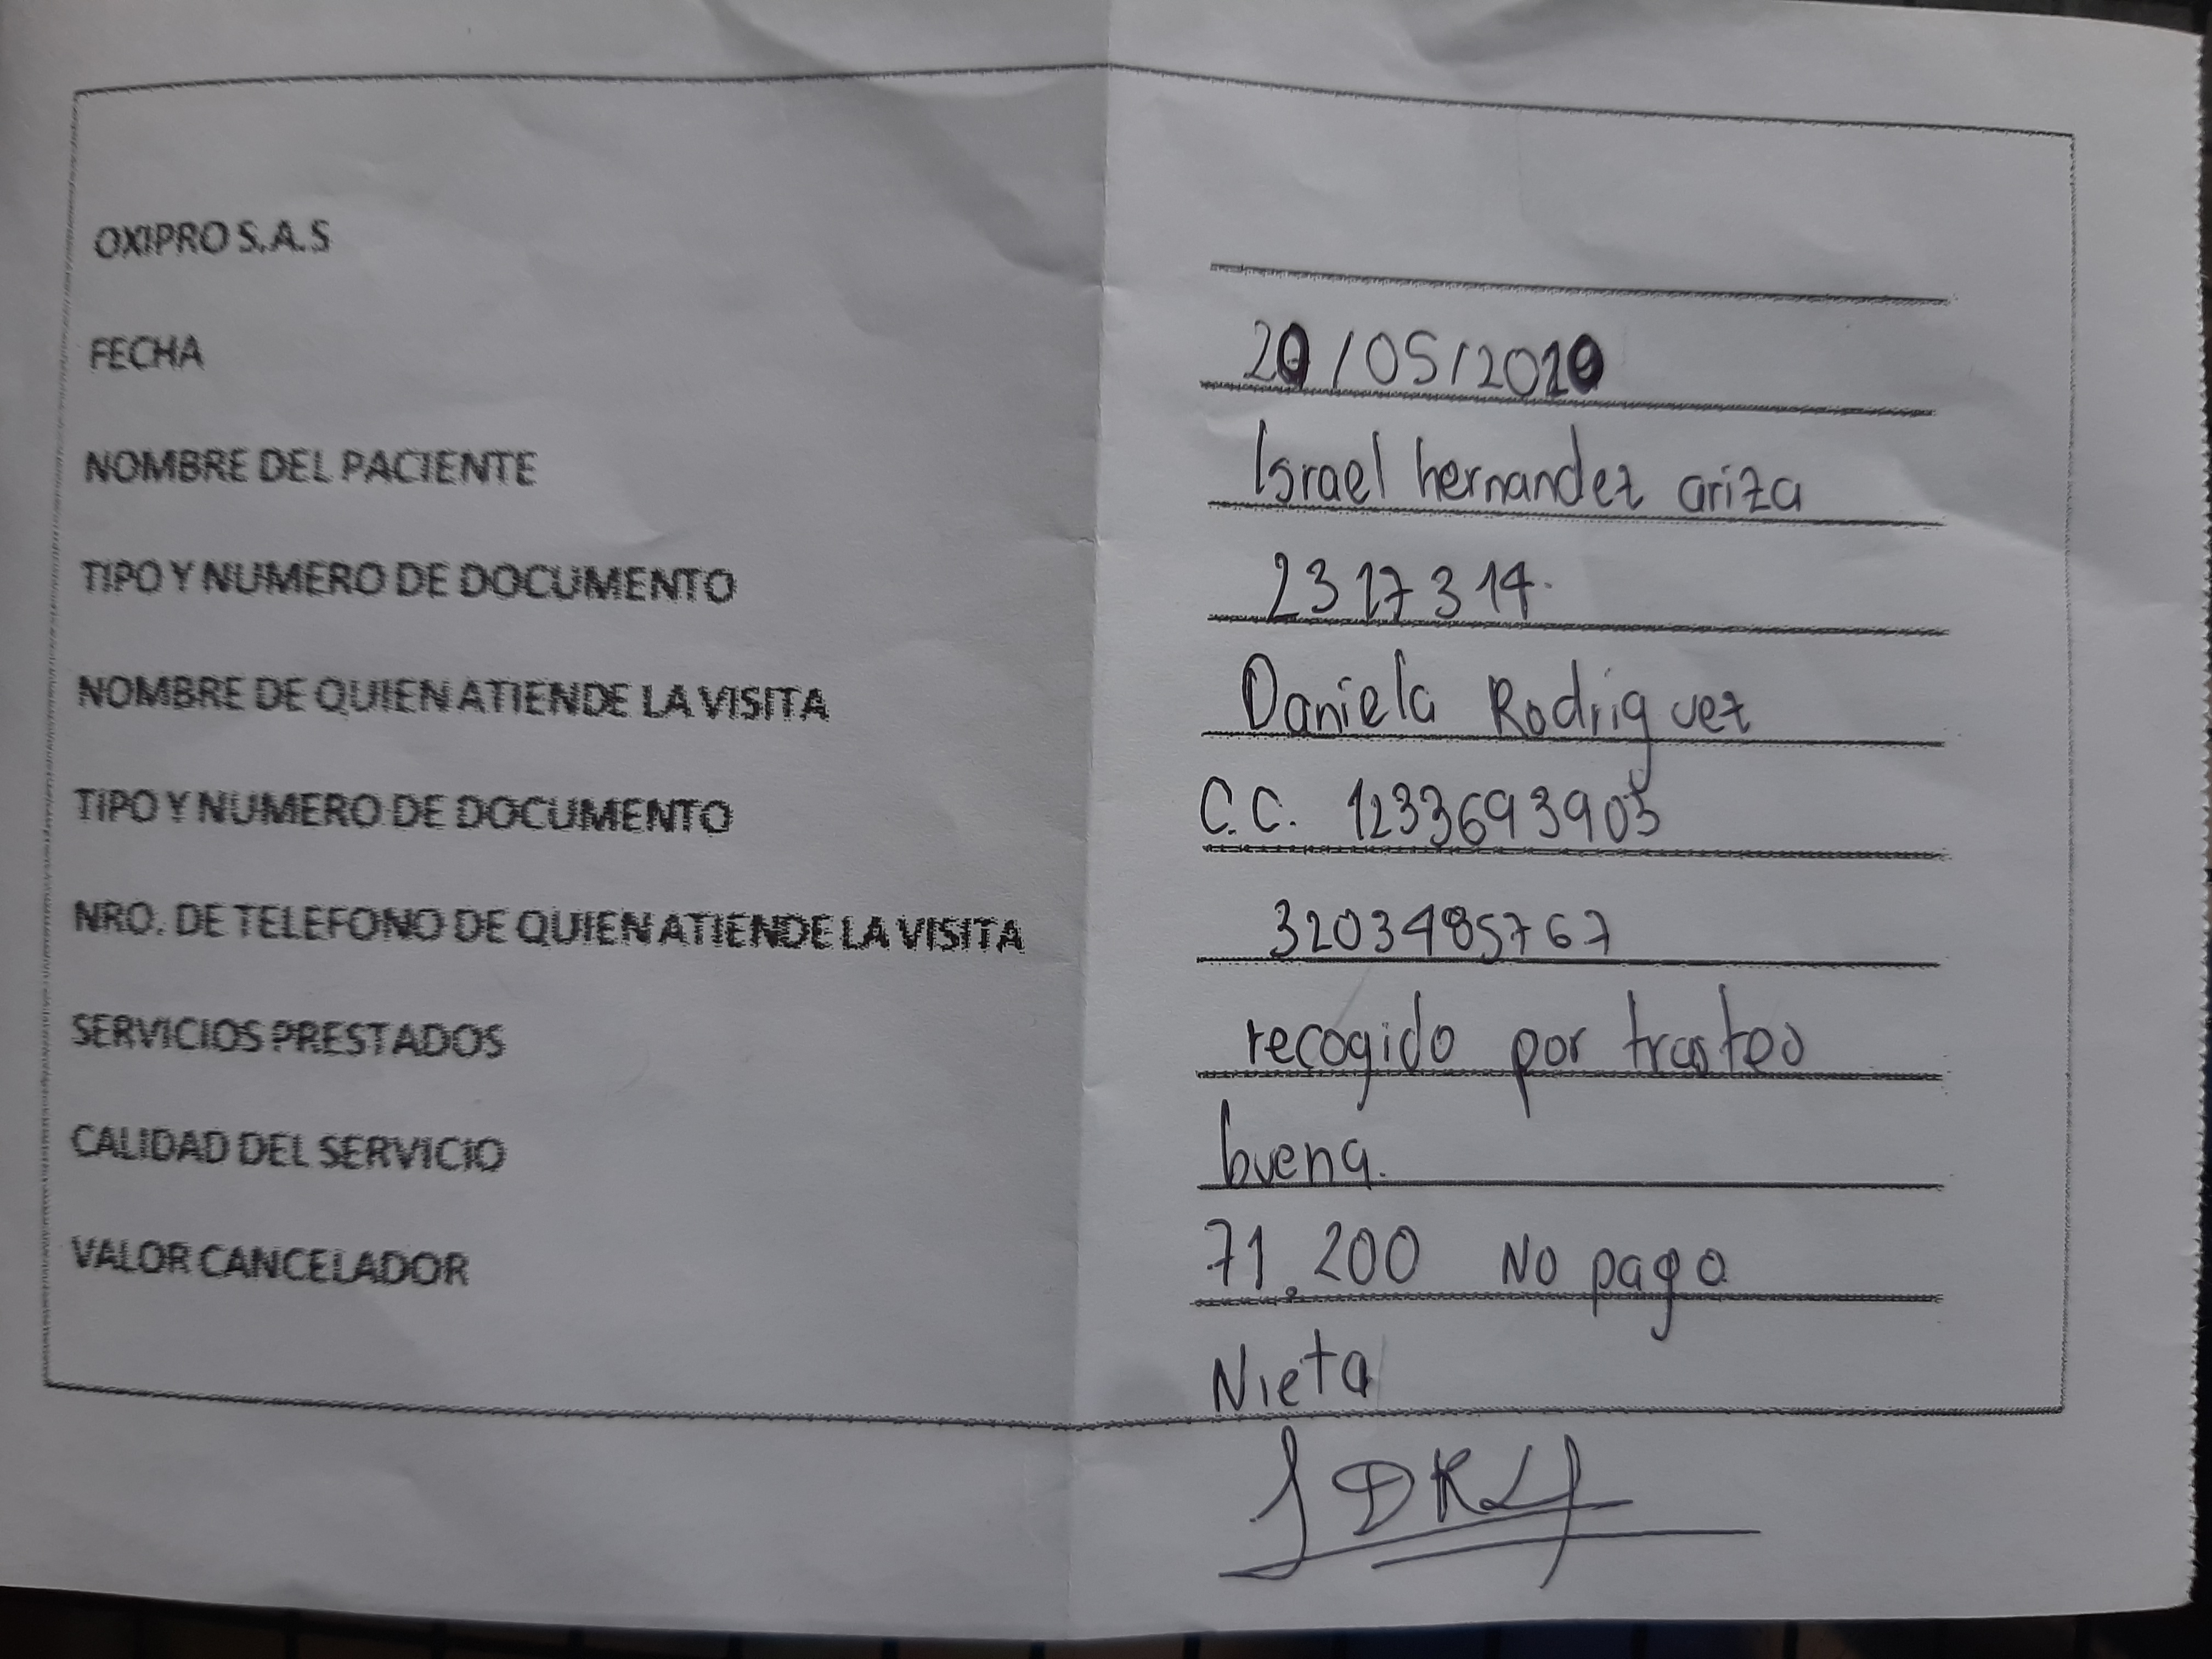 OXIPRO S.A.S
FECHA 20/05/2020
NOMBRE DEL PACIENTE Israel hernandez ariza
TIPO Y NUMERO DE DOCUMENTO 2317314.
NOMBRE DE QUIEN ATIENDE LA VISITA Daniela Rodriguez
TIPO Y NUMERO DE DOCUMENTO C.C. 1233693905
NRO. DE TELEFONO DE QUIEN ATIENDE LA VISITA 3203485767
SERVICIOS PRESTADOS recogido por trasteo
CALIDAD DEL SERVICIO buena.
VALOR CANCELADOR 71.200 No pago
Nieta